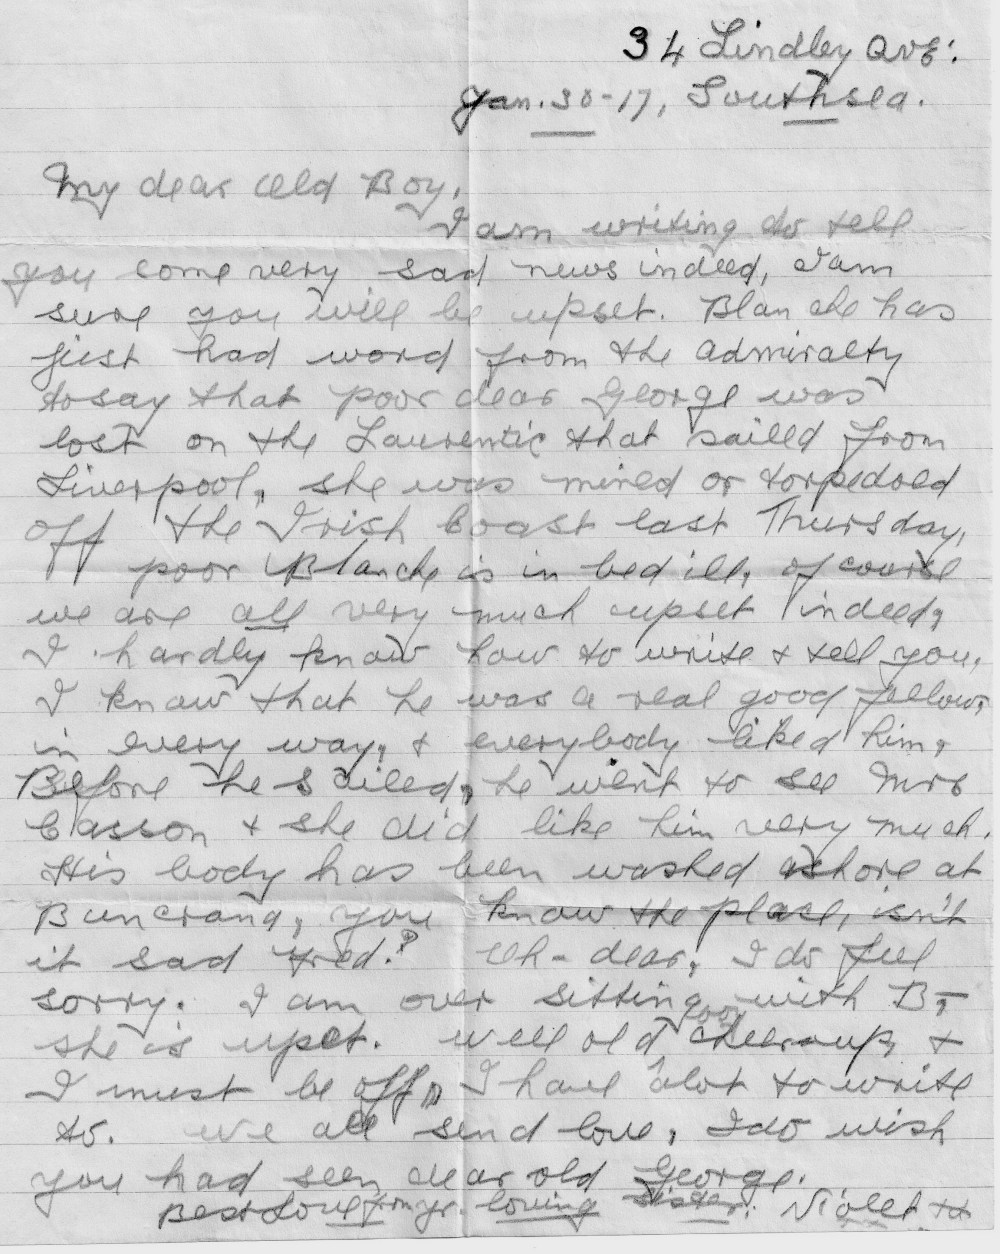 34 Lindley Ave:
Jan. 30-17, Southsea.
My dear Old Boy,
I am writing to tell
you some very sad news indeed, I am
sure you will be upset. Blanche has
just had word from the Admiralty
to say that poor dear George was
lost on the Laurentic that sailed from
Liverpool, she was mined or torpedoed
off the Irish Coast last Thursday,
poor Blanche is in bed ill, of course
we are all very much upset indeed,
I hardly know how to write & tell you,
I know that he was a real good fellow,
in every way, & everybody liked him,
Before he sailed, he went to see Mrs
Casson & she did like him very much.
His body has been washed ashore at
Buncrana, you know the place, isn't
it sad Fred? Oh - dear, I do feel
sorry. I am over sitting with B-,
she is upset. Well old boy cheer-up, &
I must be off, I have alot to write
to. We all send love, I do wish
you had seen dear old George.
Best Love from yr. loving Sister. Violet xx